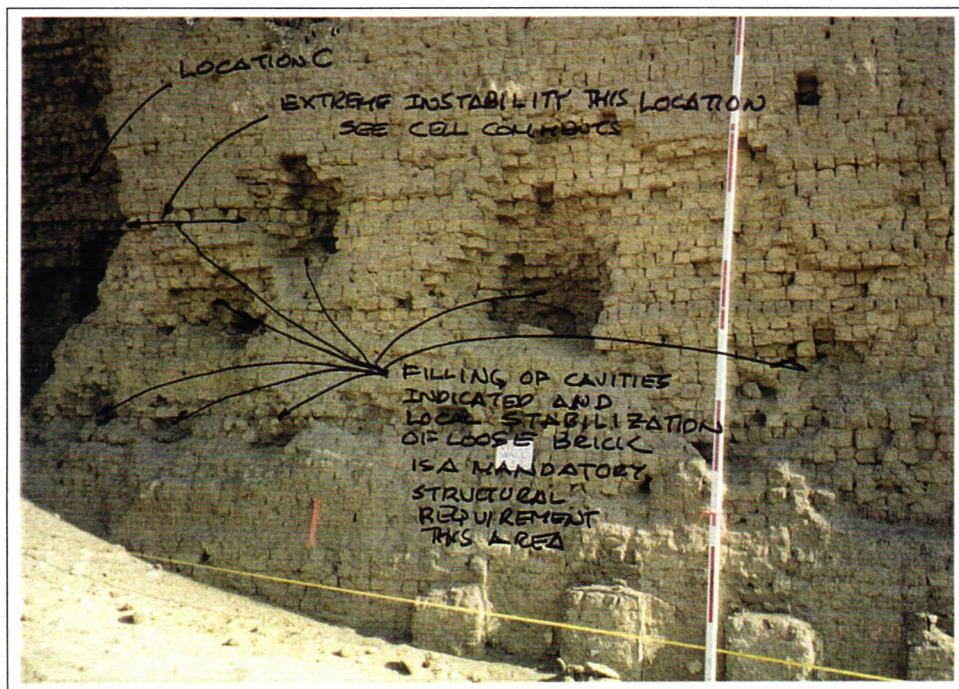 LOCATION "C"
EXTREME INSTABILITY THIS LOCATION
SEE CELL COMMENTS
FILLING OF CAVITIES
INDICATED AND
LOCAL STABILIZATION
OF LOOSE BRICK
IS A MANDATORY
STRUCTURAL
REQUIREMENT
THIS AREA